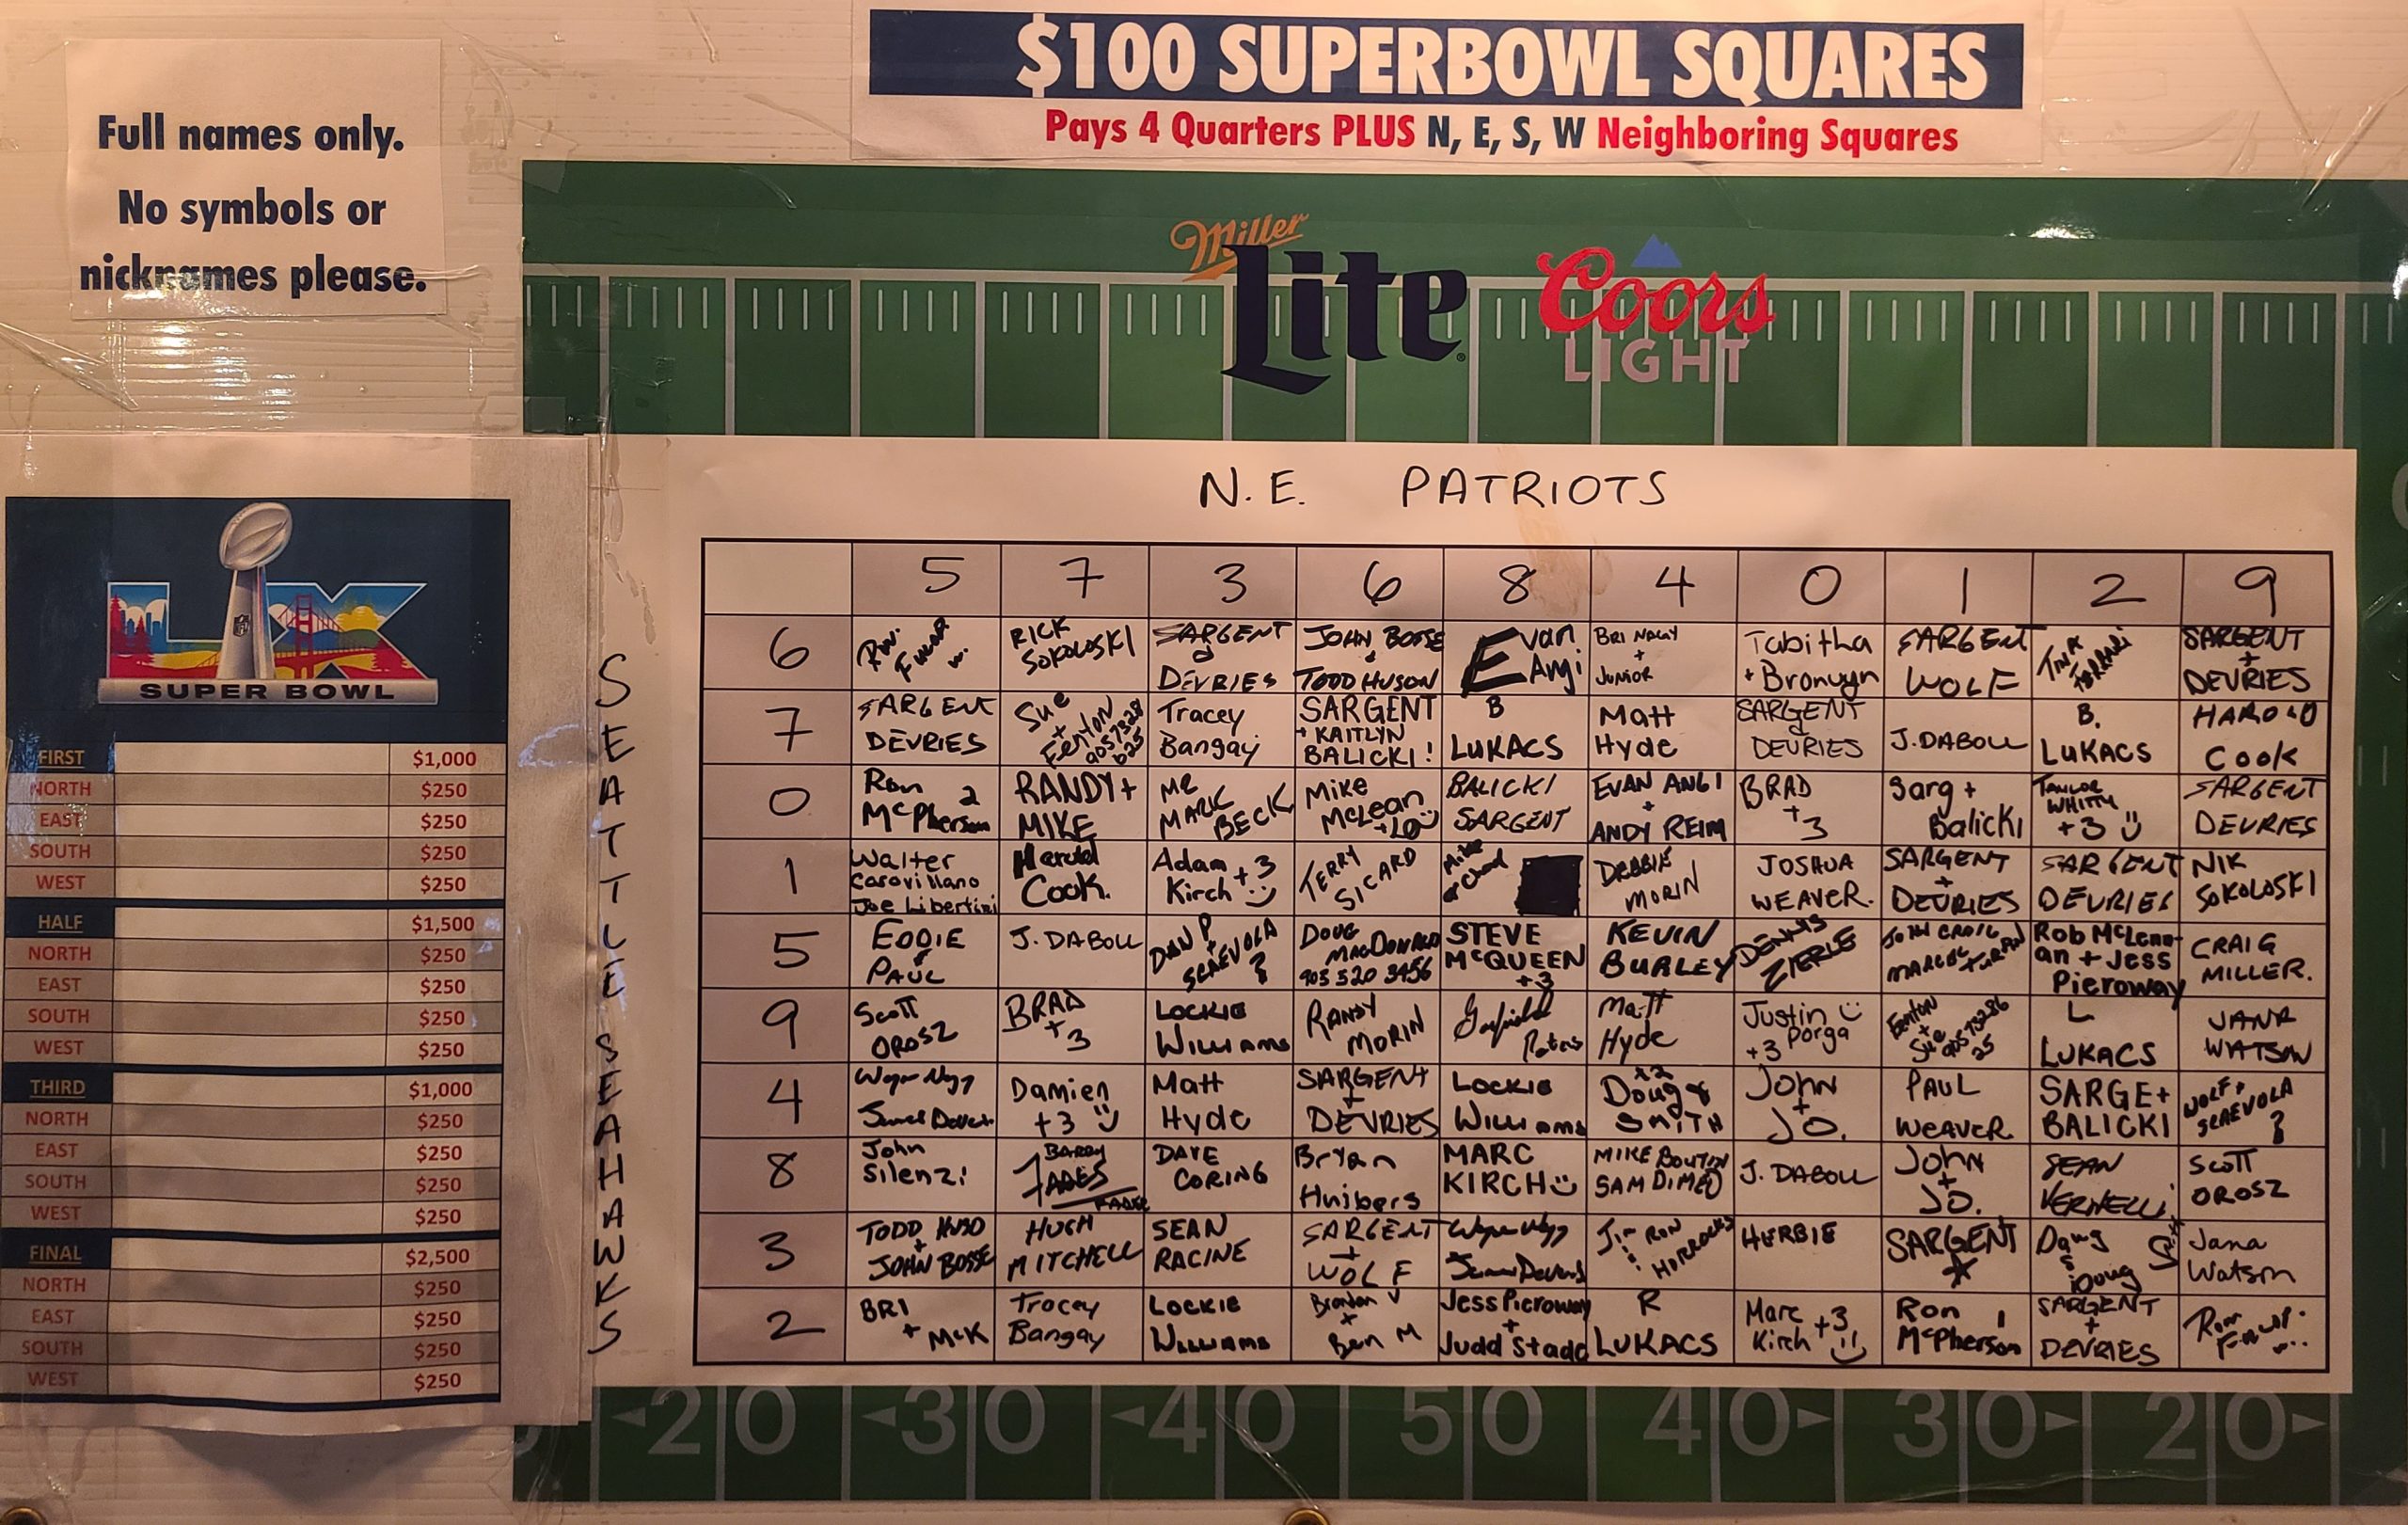 Full names only.
No symbols or
nicknames please.
$100 SUPERBOWL SQUARES
Pays 4 Quarters PLUS N, E, S, W Neighboring Squares
Miller
Lite
Coors
LIGHT
LX
SUPER BOWL
FIRST $1,000
NORTH $250
EAST $250
SOUTH $250
WEST $250
HALF $1,500
NORTH $250
EAST $250
SOUTH $250
WEST $250
THIRD $1,000
NORTH $250
EAST $250
SOUTH $250
WEST $250
FINAL $2,500
NORTH $250
EAST $250
SOUTH $250
WEST $250
N.E. PATRIOTS
SEATTLE SEAHAWKS
5 7 3 6 8 4 0 1 2 9
6
RICK
SOKOLOSKI
SARGENT
&
DEVRIES
JOHN BOSSE
&
TODD HUSON
Evan
Angi
BRI NAGY
+
JUNIOR
Tabitha
+ Bronwyn
SARGENT
WOLF
TINA
FERRARI
SARGENT
+
DEVRIES
7
SARGENT
DEVRIES
Sue
+
Fenton
905 7328
625
Tracey
Bangay
SARGENT
+ KAITLYN
BALICKI!
B
LUKACS
Matt
Hyde
SARGENT
&
DEVRIES
J. DABOLL
B.
LUKACS
HAROLD
Cook
0
Ron 2
McPherson
RANDY +
MIKE
MR
MARK
BECK
Mike
McLean
+10
BALICKI
SARGENT
EVAN ANGI
+
ANDY REIM
BRAD
+
3
Sarg +
Balicki
TAYLOR
WHITTY
+3
SARGENT
DEVRIES
1
Walter
Carovillano
Joe Libertini
Harold
Cook.
Adam +3
Kirch
TERRY
SICARD
Mike
DEBBIE
MORIN
JOSHUA
WEAVER.
SARGENT
+
DEVRIES
SARGENT
DEVRIES
NIK
SOKOLOSKI
5
EDDIE
&
PAUL
J. DABOLL
DAN P
+
SCAEVOLA
?
DOUG
MACDONALD
905 520 3456
STEVE
McQUEEN
+3
KEVIN
BURLEY
DENNIS
ZIERLE
JOHN CRAIG
Rob McLenn-
an + Jess
Pieroway
CRAIG
MILLER.
9
Scott
OROSZ
BRAD
+
3
LOCKIE
WILLIAMS
RANDY
MORIN
Garfield
Peters
Matt
Hyde
Justin
Porga
+3
Fenton
+
Sue
905 73286
25
L
LUKACS
JANA
WATSON
4
Damien
+3
Matt
Hyde
SARGENT
+
DEVRIES
LOCKIE
WILLIAMS
+2
Doug &
SMITH
John
+
JO.
PAUL
WEAVER
SARGE +
BALICKI
WOLF +
SCAEVOLA
?
8
John
Silenzi
BARRY
DAVE
CORING
Bryan
Huibers
MARC
KIRCH
MIKE BOUTIN
SAM DIMEO
J. DABOLL
John
+
JO.
SEAN
VERNELLI
SCOTT
OROSZ
3
TODD HUSO
+
JOHN BOSSE
HUGH
MITCHELL
SEAN
RACINE
SARGENT
+
WOLF
Jim RON
HORROCKS
HERBIE
SARGENT
Doug
Doug
Jana
Watson
2
BRI
+ McK
Tracey
Bangay
LOCKIE
WILLIAMS
Brandon V
+
Ben M
Jess Pieroway
+
Judd Stadd
R
LUKACS
Marc +3
Kirch
Ron 1
McPherson
SARGENT
+
DEVRIES
20 30 40 50 40 30 20